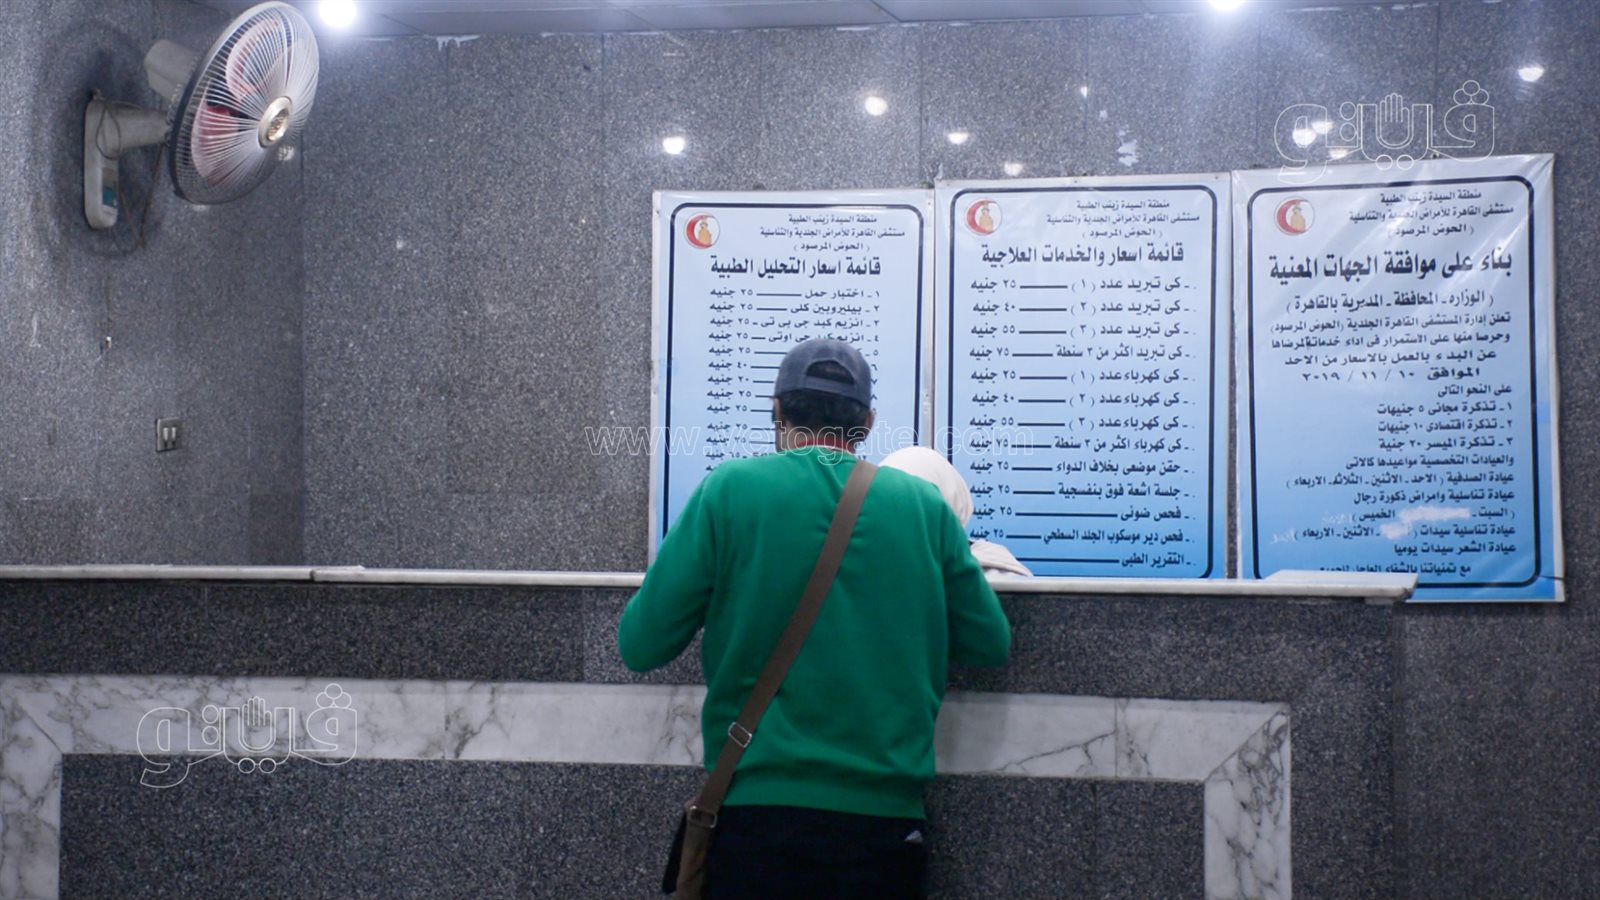 منطقة السيدة زينب الطبية
مستشفى القاهرة للأمراض الجلدية والتناسلية
( الحوض المرصود )
بناء على موافقة الجهات المعنية
( الوزاره - المحافظة - المديرية بالقاهرة )
تعلن إدارة المستشفى القاهرة الجلدية (الحوض المرصود)
وحرصا منها على الاستمرار فى اداء خدماتة لمرضاها
عن البدء بالعمل بالاسعار من الاحد
الموافق ١٠ / ١١ / ٢٠١٩
على النحو التالى
١ - تذكرة مجانى ٥ جنيهات
٢ - تذكرة اقتصادى ١٠ جنيهات
٣ - تذكرة الميسر ٢٠ جنية
والعيادات التخصصية مواعيدها كالاتى
عيادة الصدفية ( الاحد - الاثنين - الثلاثاء - الاربعاء )
عيادة تناسلية وامراض ذكورة رجال
( السبت - الخميس )
عيادة تناسلية سيدات ( - الاثنين - الاربعاء )
عيادة الشعر سيدات يوميا
مع تمنياتنا بالشفاء العاجل للجميع
منطقة السيدة زينب الطبية
مستشفى القاهرة للأمراض الجلدية والتناسلية
( الحوض المرصود )
قائمة اسعار والخدمات العلاجية
- كى تبريد عدد ( ١ ) ــــ ٢٥ جنيه
- كى تبريد عدد ( ٢ ) ــــ ٤٠ جنيه
- كى تبريد عدد ( ٣ ) ــــ ٥٥ جنيه
- كى تبريد اكثر من ٣ سنطة ــــ ٧٥ جنيه
- كى كهرباء عدد ( ١ ) ــــ ٢٥ جنيه
- كى كهرباء عدد ( ٢ ) ــــ ٤٠ جنيه
- كى كهرباء عدد ( ٣ ) ــــ ٥٥ جنيه
- كى كهرباء اكثر من ٣ سنطة ــــ ٧٥ جنيه
- حقن موضعى بخلاف الدواء ــــ ٢٥ جنيه
- جلسة اشعة فوق بنفسجية ــــ ٢٥ جنيه
- فحص ضوئى ــــ ٢٥ جنيه
- فحص دير موسكوب الجلد السطحي ــــ ٢٥ جنيه
- التقرير الطبى ــــ
منطقة السيدة زينب الطبية
مستشفى القاهرة للأمراض الجلدية والتناسلية
( الحوض المرصود )
قائمة اسعار التحليل الطبية
١ - اختبار حمل ــــ ٢٥ جنيه
٢ - بيليروبين كلى ــــ ٢٥ جنيه
٣ - انزيم كبد جى بى تى - ٢٥ جنيه
٤ - انزيم كبد جى اوتى - ٢٥ جنيه
٥ - ٢٥ جنيه
٤٠ جنيه
٢٠ جنيه
٢٥ جنيه
٢٥ جنيه
٢٥ جنيه
فيتو
www.vetogate.com
فيتو